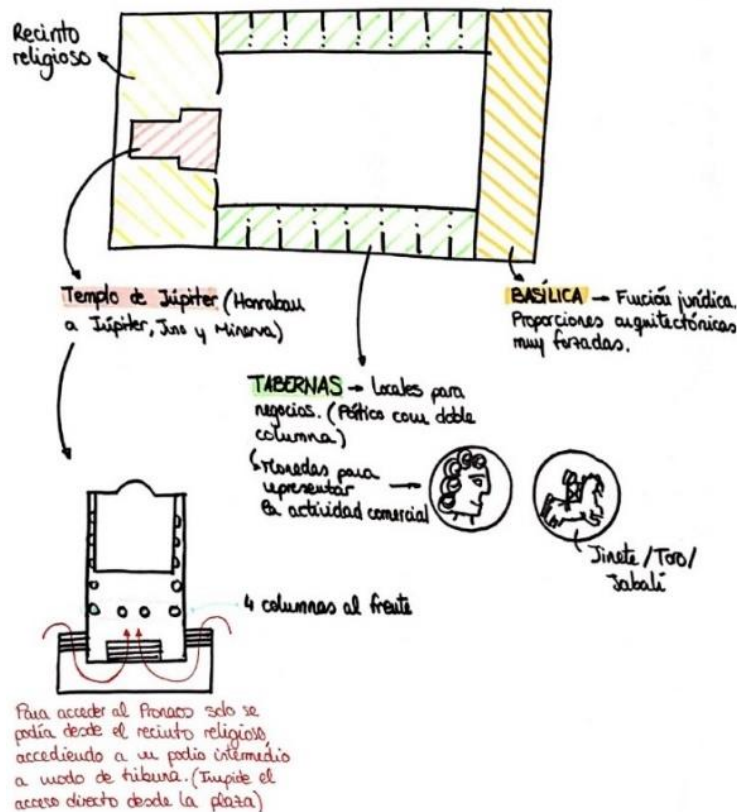 Recinto
religioso
Templo de Júpiter (Honraban
a Júpiter, Juno y Minerva)
BASÍLICA → Función jurídica.
Proporciones arquitectónicas
muy forzadas.
TABERNAS → Locales para
negocios. (Pórtico com doble
columna)
Monedas para
representar
la actividad comercial
Jinete/Toro/
Jabalí
4 columnas al frente
Para acceder al Pronaos solo se
podía desde el recinto religioso,
accediendo a un podio intermedio
a modo de tribuna. (Impide el
acceso directo desde la plaza)